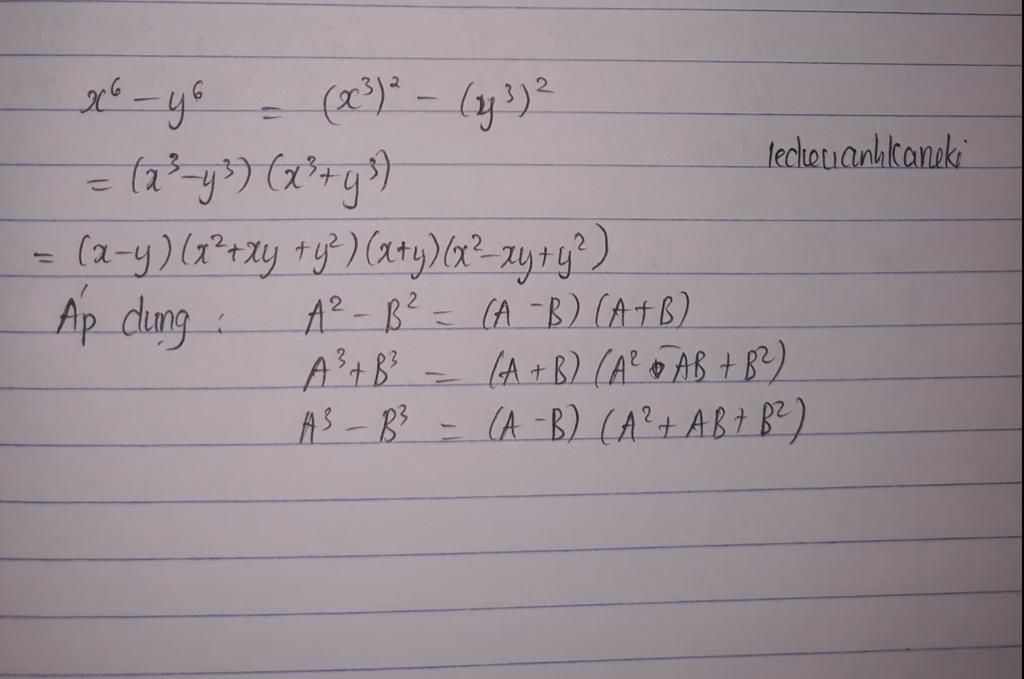 x⁶ – y⁶ = (x³)² – (y³)²
= (x³–y³) (x³+y³)
= (x–y) (x²+xy+y²) (x+y) (x²–xy+y²)
Áp dụng : A² – B² = (A –B) (A+B)
A³+B³ = (A+B) (A² – AB + B²)
A³ – B³ = (A –B) (A²+ AB+ B²)